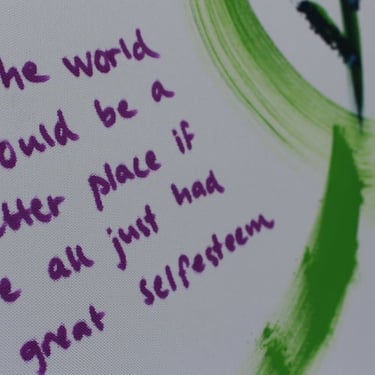 he world
ould be a
etter place if
e all just had
great selfesteem